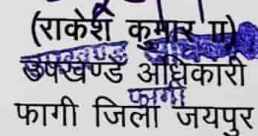 (राकेश कुमार II)
उपखण्ड अधिकारी
फागी
फागी जिला जयपुर